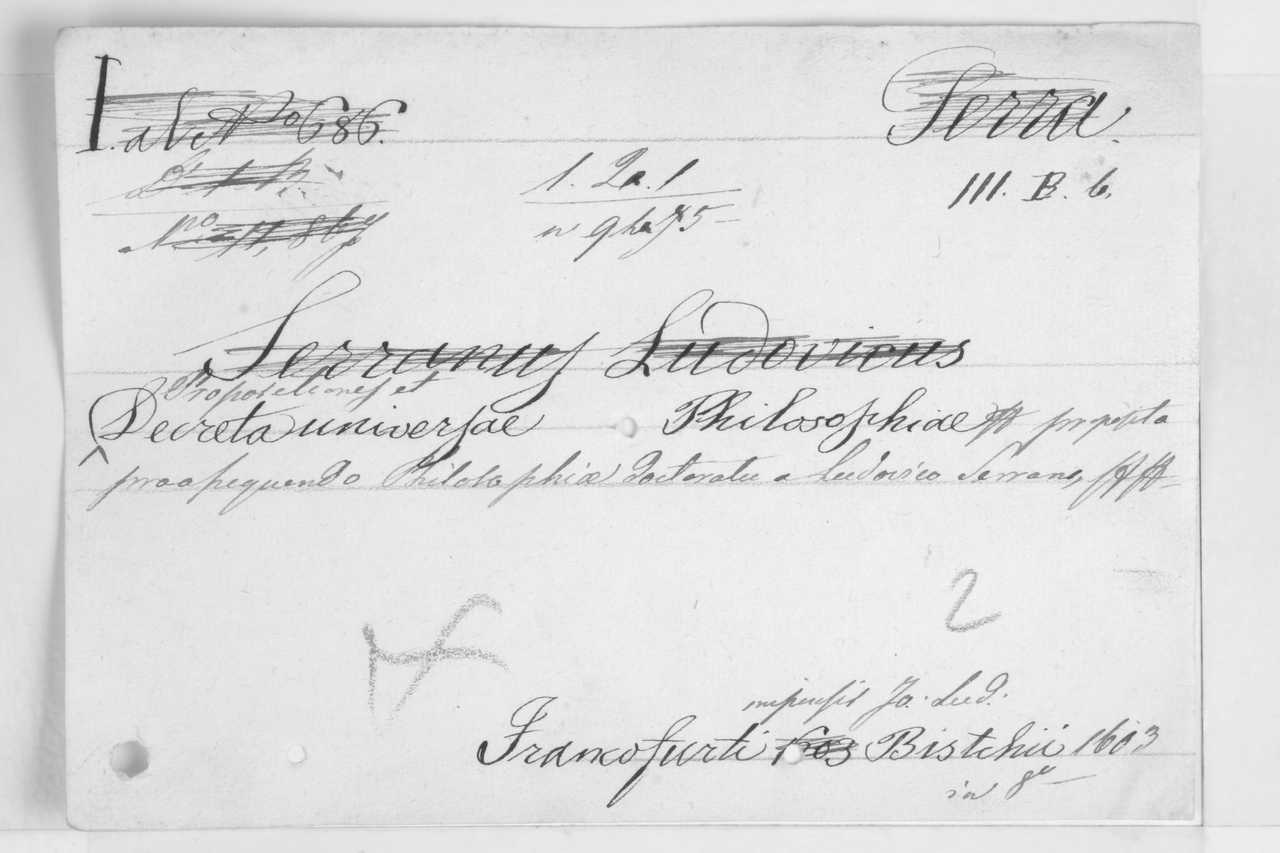 I. Serra.
No 686.
1. 2a. 1 III. B. 6.
Serranus Ludovicus
Propositiones et
Decreta universae Philosophiae proposita
pro assequendo Philosophiae doctoratu a Ludovico Serrano
2
impensis Jo. Lud.
Francofurti Bistchii 1603
in 8o